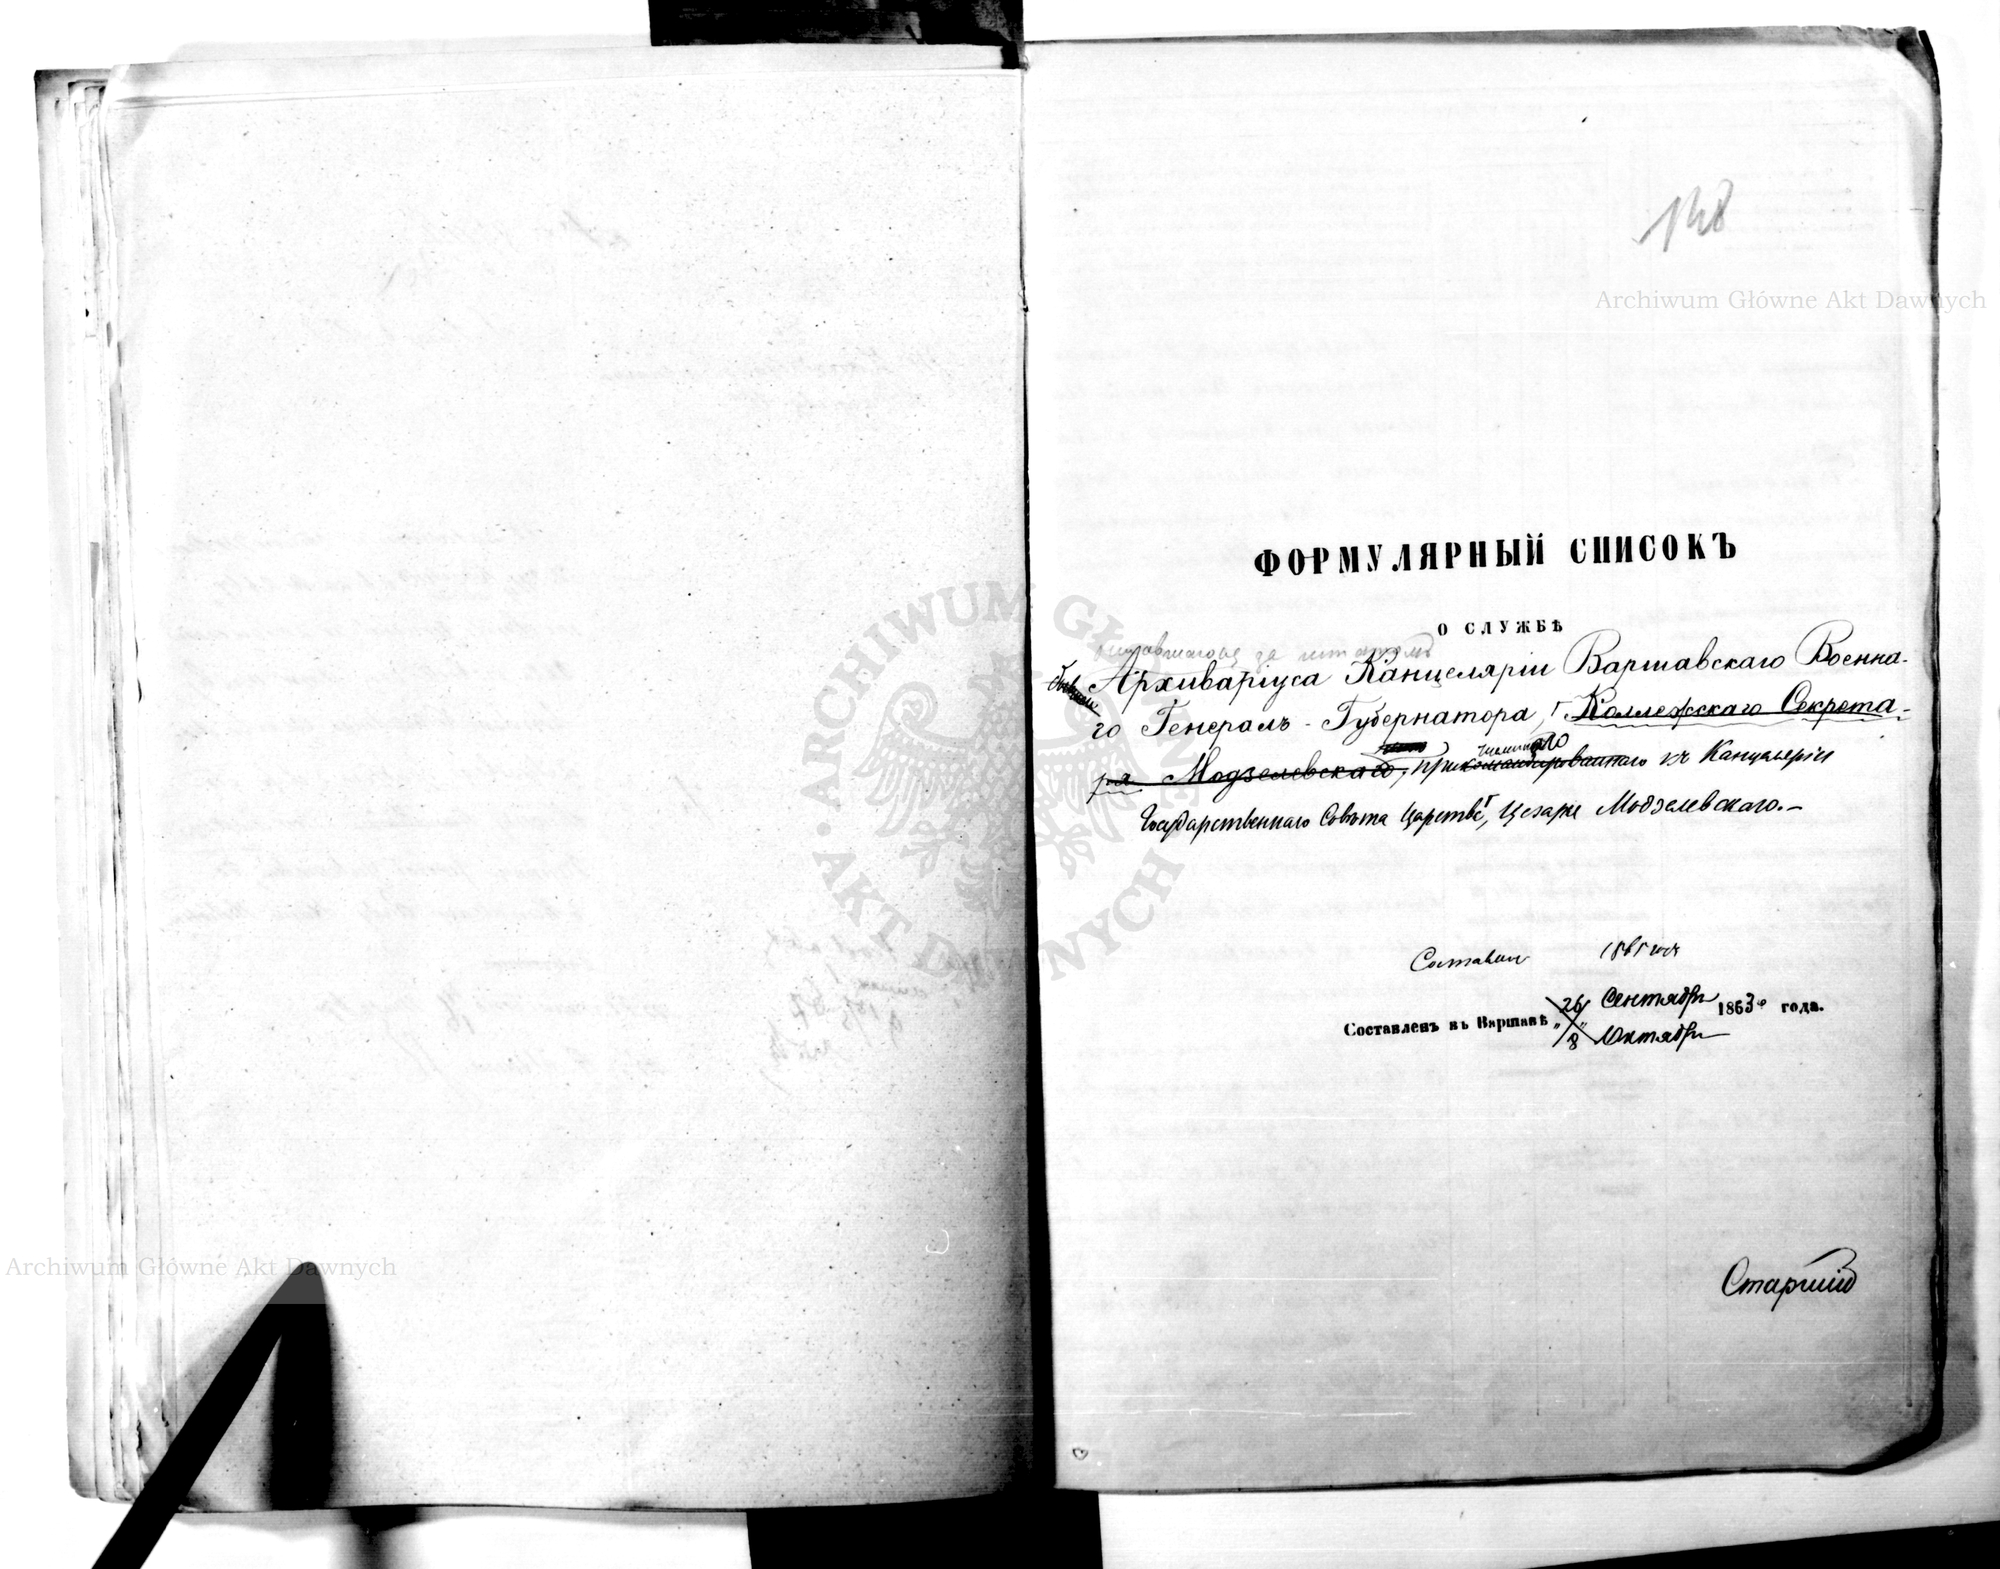 148
Archiwum Główne Akt Dawnych
ФОРМУЛЯРНЫЙ СПИСОКЪ
О СЛУЖБѢ
за штатомъ
Архиваріуса Канцеляріи Варшавскаго Военна-
го Генералъ-Губернатора, Коллежскаго Секрета-
ря Модзелевскаго, прикомандированнаго къ Канцеляріи
Государственнаго Совѣта Царства, Цезаря Модзелевскаго.-
ARCHIWUM GŁÓWNE AKT DAWNYCH
Составленъ 1865 года
Составленъ въ Варшавѣ „26/8" Сентября 1863 года.
Октября
Archiwum Główne Akt Dawnych
Старшій